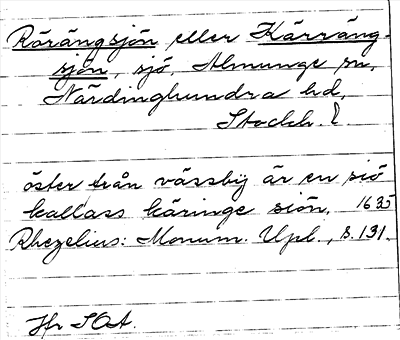 Rörängsjön eller Kärräng-
sjön, sjö, Almunge sn,
Närdinghundra hd,
Stockh. l.
öster från vässby är en siö
kallass käringe siön, 1635
Rhezelius: Monum. Upl., s. 131.
Hr SOA.